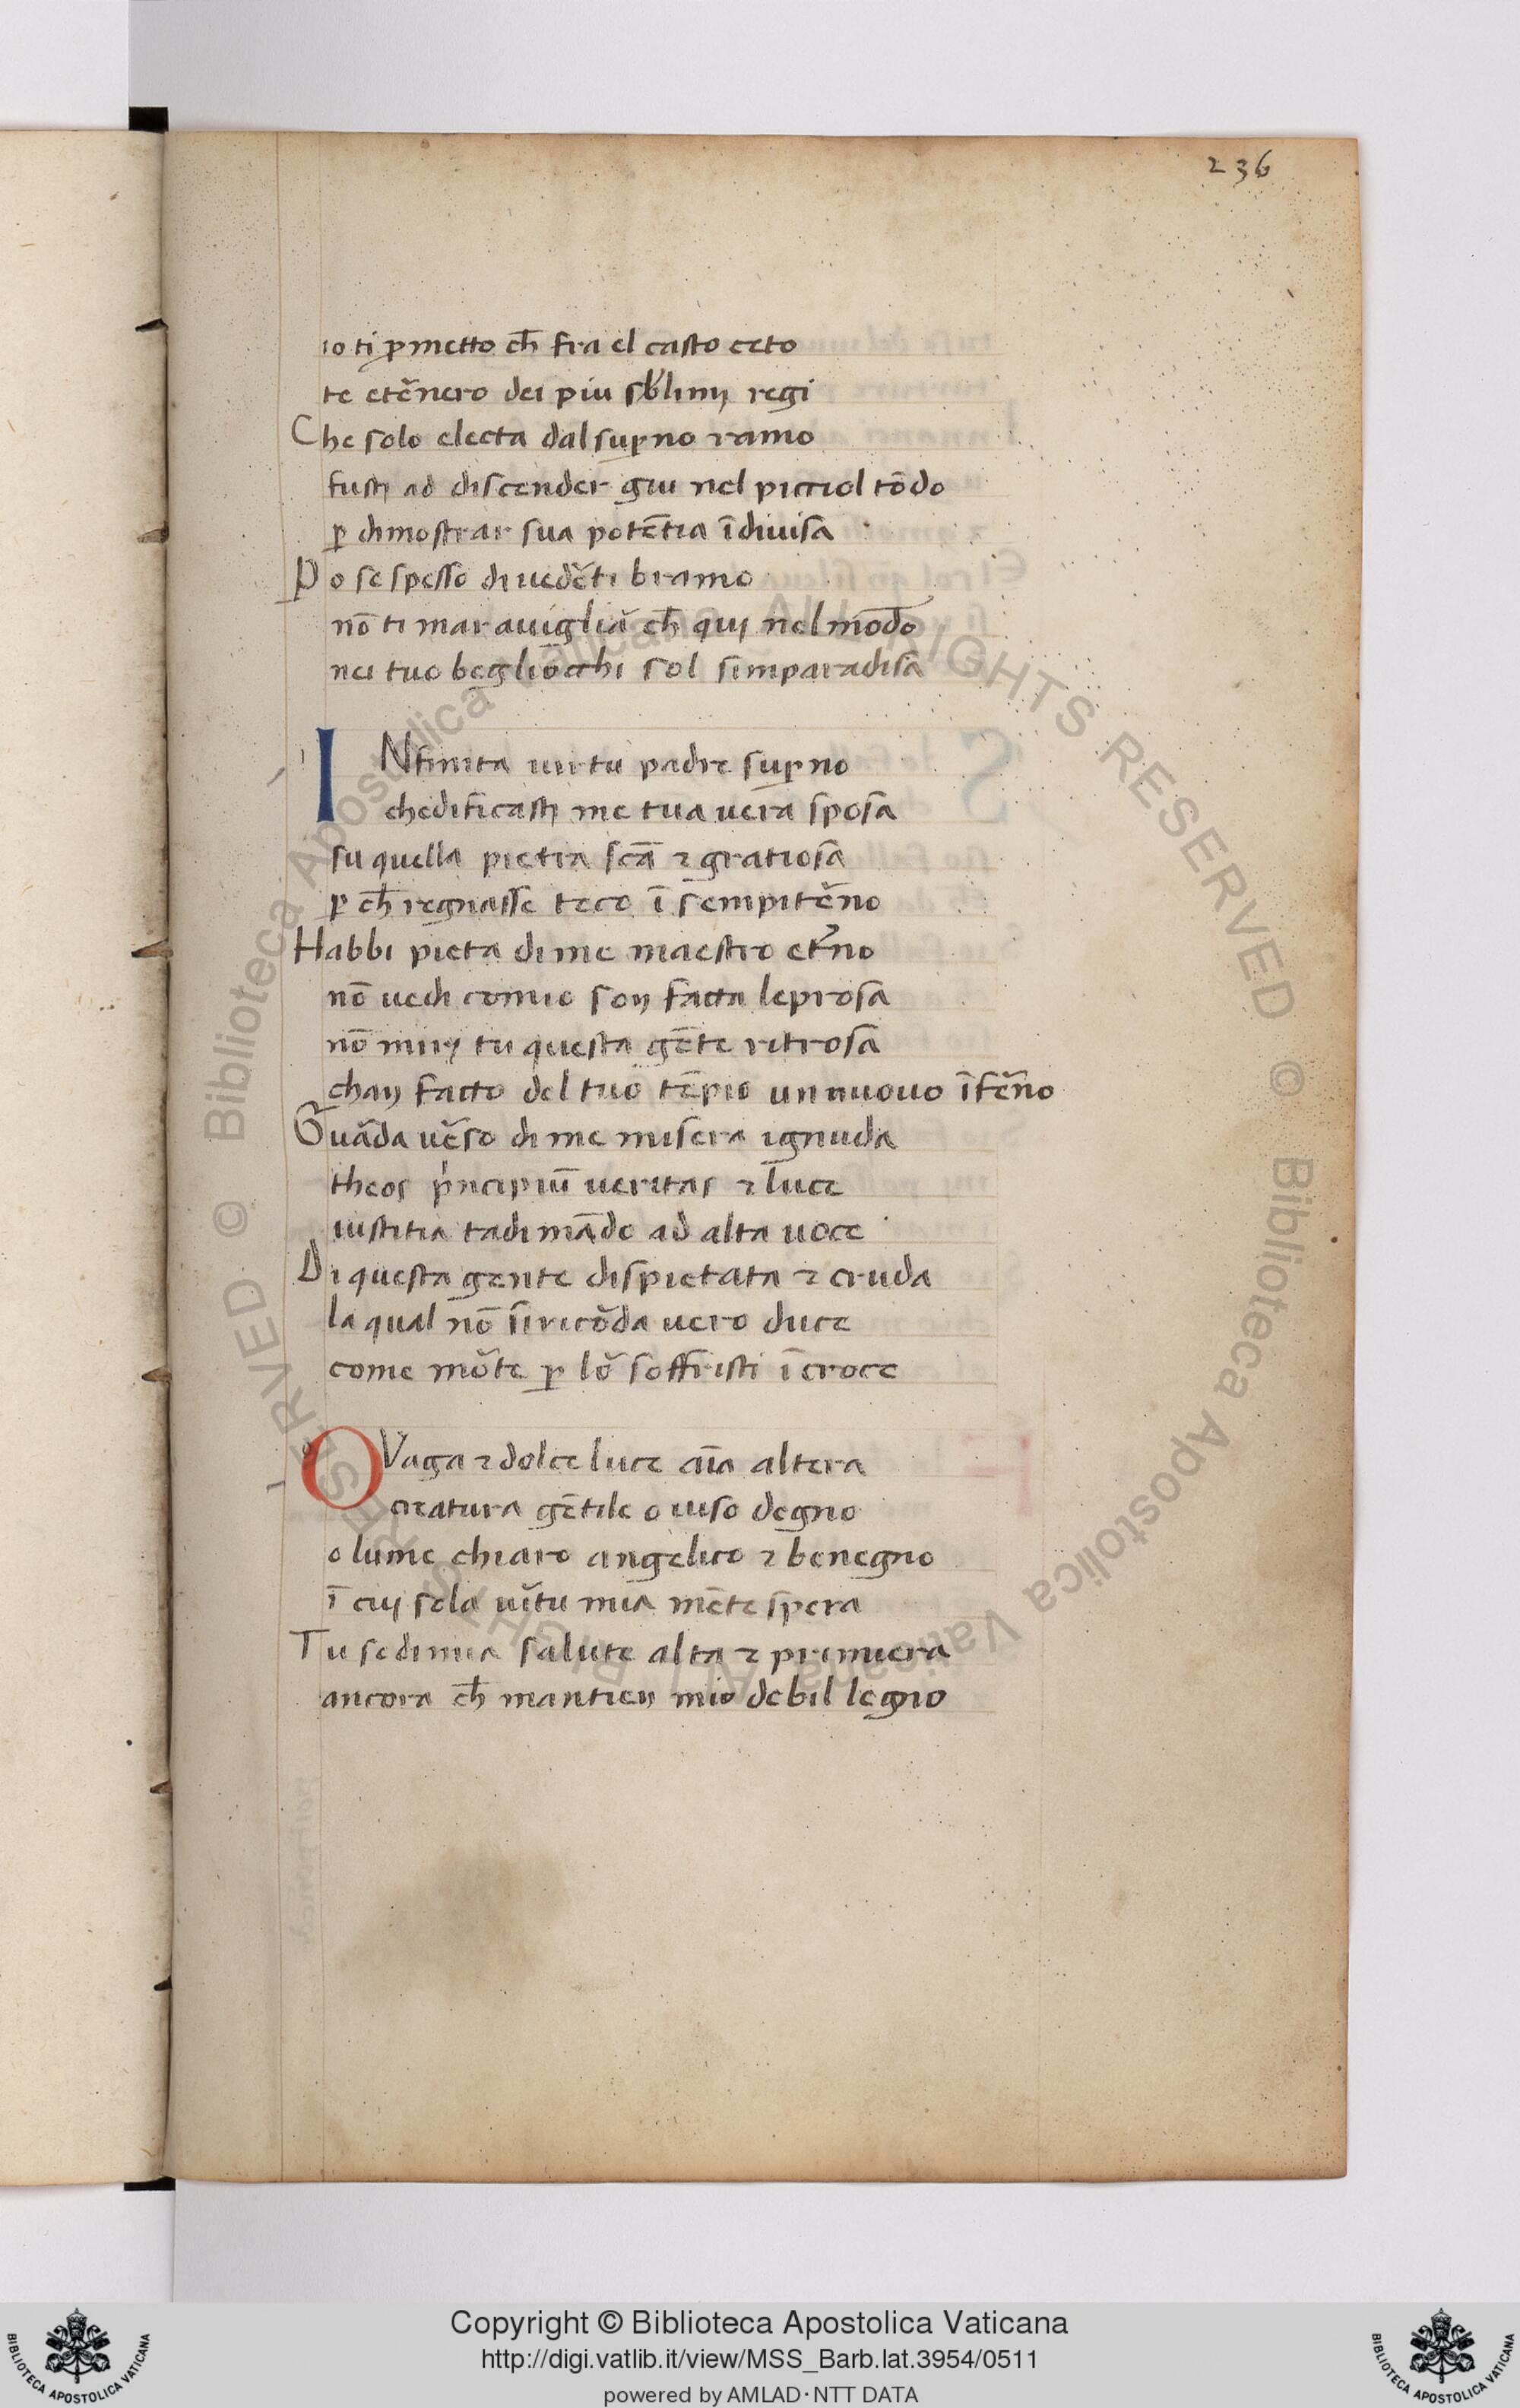 236
io ti ꝓmetto ch̅ fra el casto ceto
te etẽnero dei piu sblimj regi
Che solo electa dal suꝑno ramo
fustj ad discender giu nel picciol tõdo
ꝑ dimostrar sua potẽtia ĩdiuisa
Po se spesso di uedẽti bramo
nõ ti marauigliã ch̅ quj nel mõdo
nei tuo begliocchi sol simparadisa
INfinita uirtu padre suꝑno
chedificastj me tua uera sposa
su quella pietra scã ⁊ gratiosa
ꝑ ch̅ regnasse teco ĩ sempitẽno
Habbi pieta di me maestro et̃no
nõ uedi comio son facta leprosa
nõ mirj tu questa gẽte ritrosa
chan facto del tuo tẽpio un nuouo ĩfẽno
Guãda uẽso di me misera ignuda
theos pncipiũ ueritas ⁊ luce
iustitia tadimãdo ad alta uoce
Di questa gente dispietata ⁊ cruda
la qual nõ siricõda uero duce
come mõte ꝑ lõ soffristi ĩ croce
O Vaga ⁊ dolce luce aĩa altera
creatura gẽtile o uiso degno
o lume chiaro angelico ⁊ benegno
ĩ cuj sola uĩtu mia mẽte spera
Tu se di mia salute alta ⁊ primiera
ancora ch̅ mantien mio debil legno
Copyright © Biblioteca Apostolica Vaticana
http://digi.vatlib.it/view/MSS_Barb.lat.3954/0511
powered by AMLAD·NTT DATA